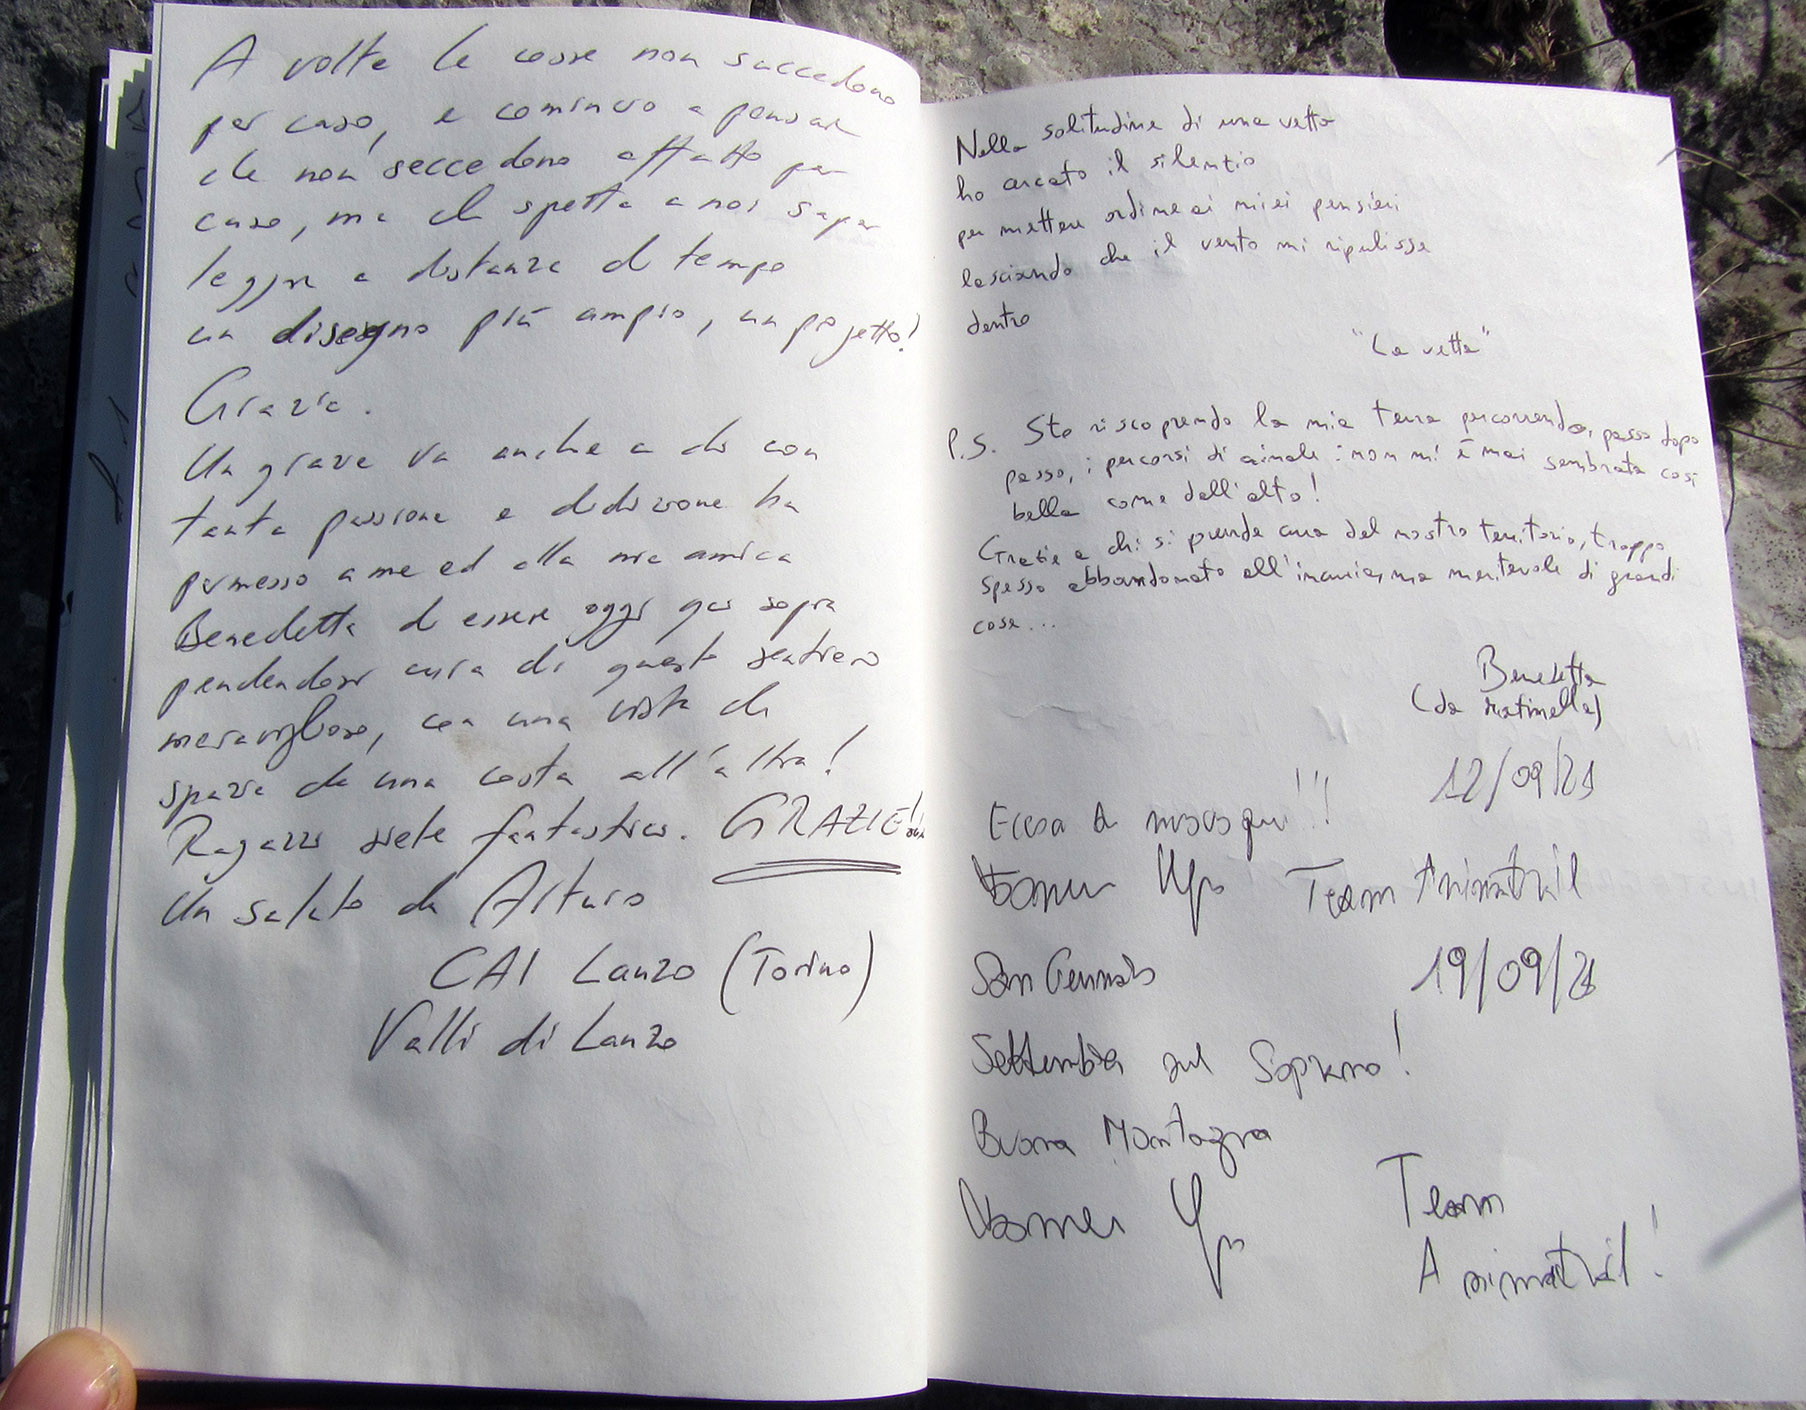 A volte le cose non succedono
per caso, e comincio a pensare
che non succedono affatto per
caso, ma che spetta a noi saper
leggere a distanza di tempo
un disegno più ampio, un progetto!
Grazie.
Un grazie va anche a chi con
tanta passione e dedizione ha
permesso a me ed alla mia amica
Benedetta di essere oggi qui sopra
prendendosi cura di questo sentiero
meraviglioso, con una vista che
spazia da una costa all'altra!
Ragazzi siete fantastici. GRAZIE!
Un saluto da Arturo
CAI Lanzo (Torino)
Valli di Lanzo
Nella solitudine di una vetta
ho cercato il silenzio
per mettere ordine ai miei pensieri
lasciando che il vento mi ripulisse
dentro
"La vetta"
P.S. Sto riscoprendo la mia terra percorrendo, passo dopo
passo, i percorsi di animale: non mi è mai sembrata così
bella come dall'alto!
Grazie a chi si prende cura del nostro territorio, troppo
spesso abbandonato all'incuria, ma meritevole di grandi
cose...
Benedetta
(da Matinella)
12/09/21
!!!
Team Animatrail
San Gennaro
19/09/21
Settembre sul Soprano!
Buona Montagna
Team
Animatrail!